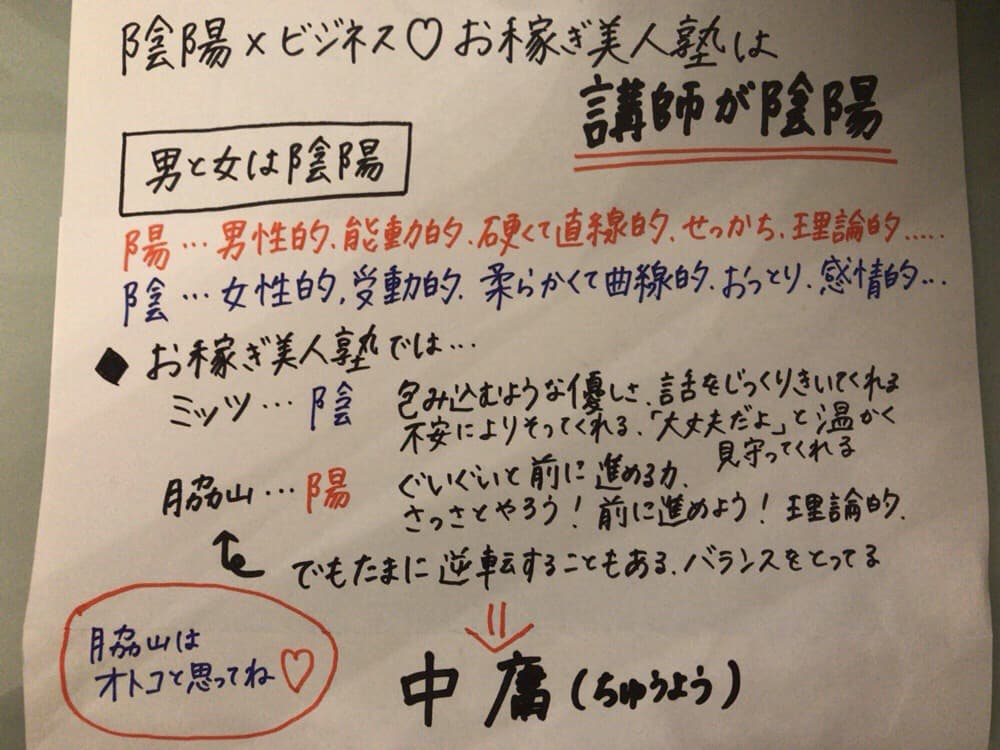 陰陽×ビジネス♡お稼ぎ美人塾は
講師が陰陽
男と女は陰陽
陽…男性的、能動的、硬くて直線的、せっかち、理論的.....
陰…女性的、受動的、柔らかくて曲線的、おっとり、感情的…
◆お稼ぎ美人塾では…
ミッツ…陰 包み込むような優しさ、話をじっくりきいてくれる
不安によりそってくれる、「大丈夫だよ」と温かく
見守ってくれる
脇山…陽 ぐいぐいと前に進める力、
さっさとやろう!前に進めよう!理論的、
でもたまに逆転することもある、バランスをとってる
脇山は
オトコと思ってね♡
中庸(ちゅうよう)